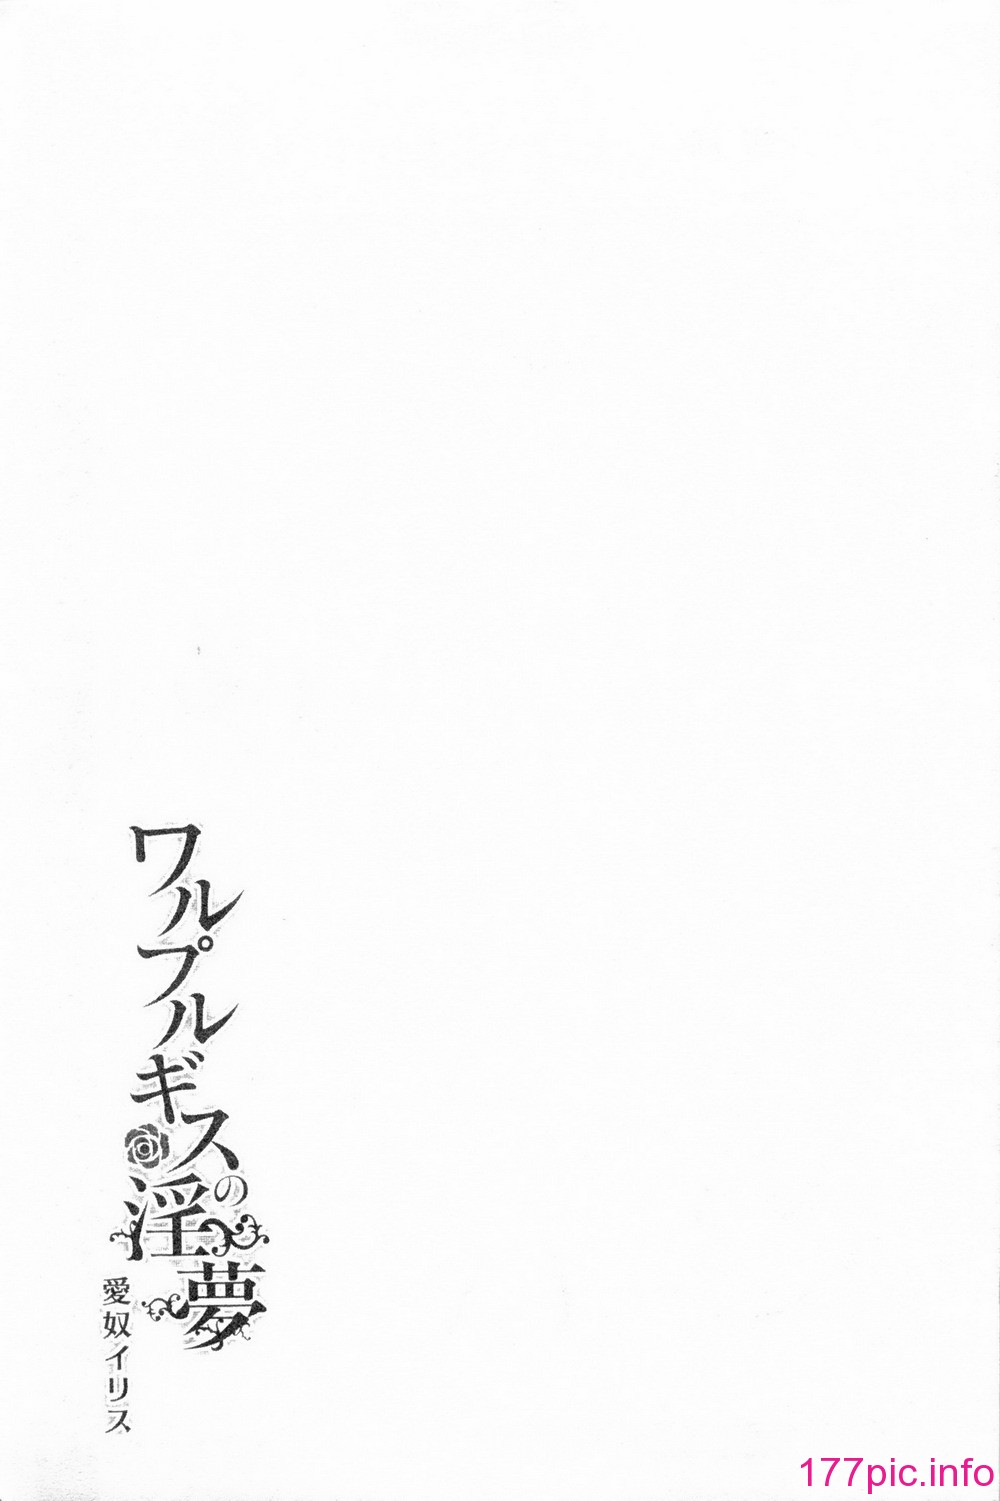 ワルプルギスの淫夢
愛奴イリス
177pic.info